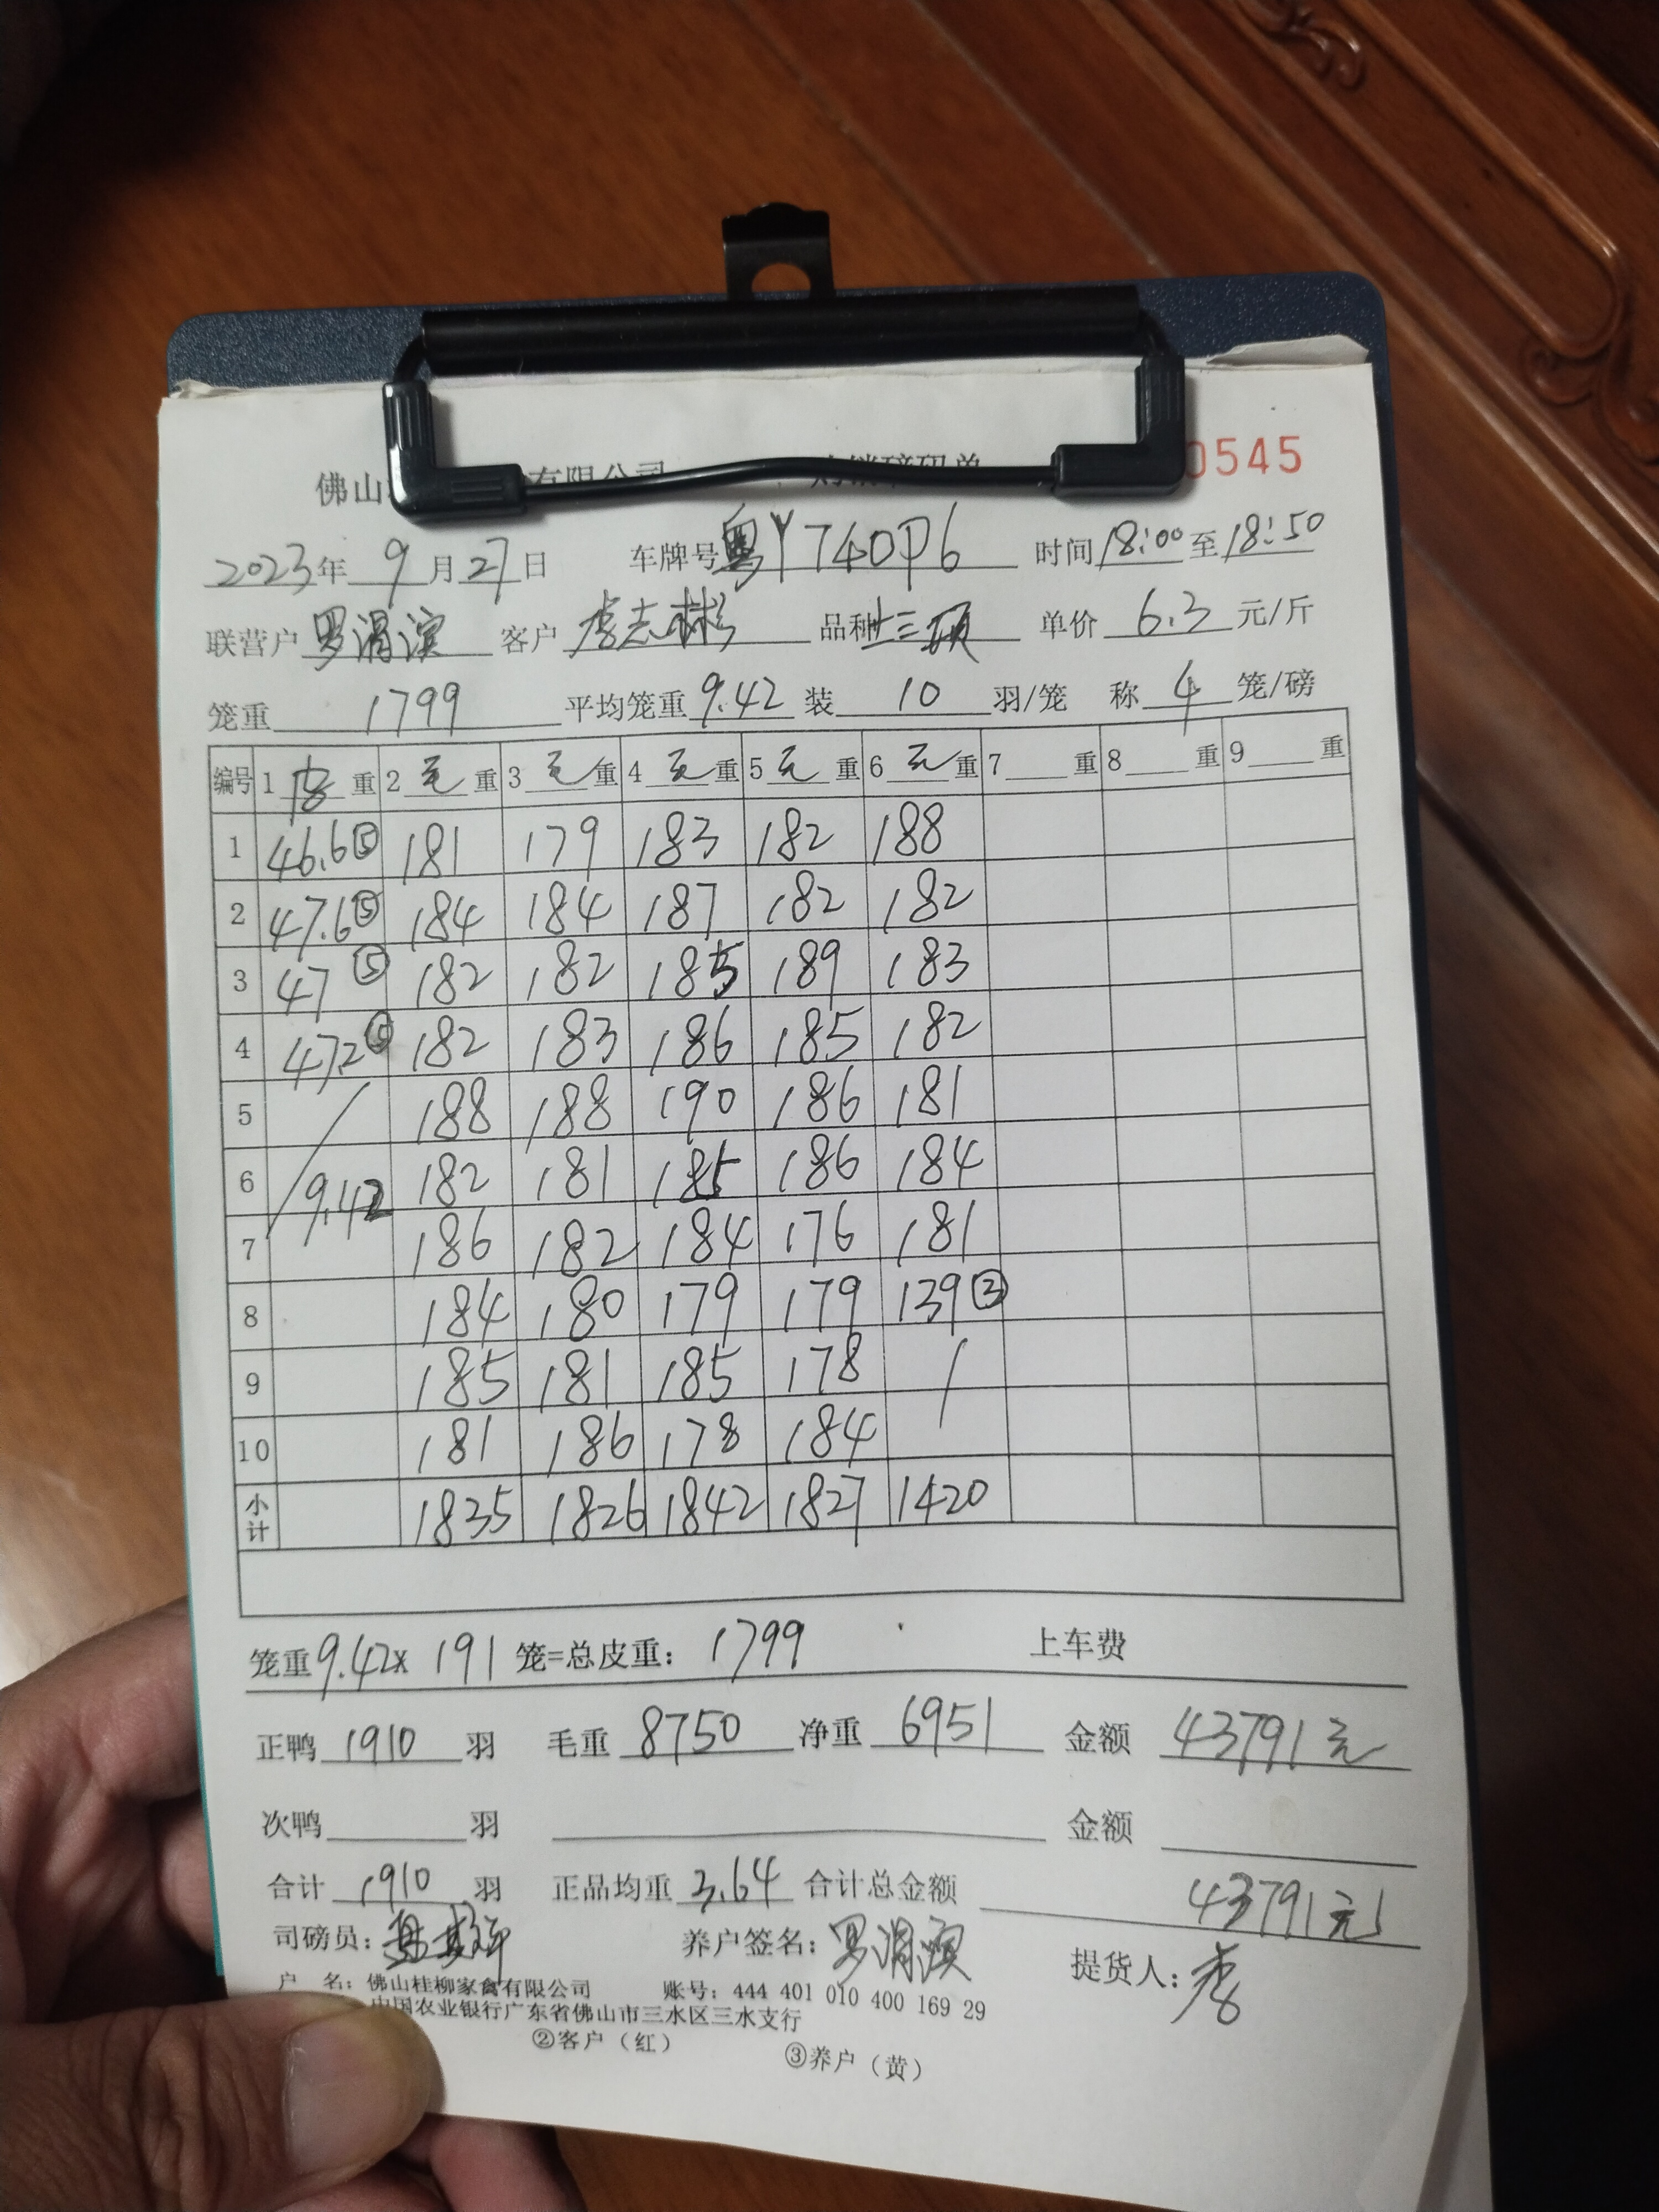 佛山 有限公司 购销磅码单 0545
2023年 9 月 27 日 车牌号 粤Y740P6 时间 18:00 至 18:50
联营户 罗润滨 客户 李志彬 品种 单价 6.3 元/斤
笼重 1799 平均笼重 9.42 装 10 羽/笼 称 4 笼/磅
编号 1 皮 重 2 毛 重 3 毛 重 4 毛 重 5 毛 重 6 毛 重 7 重 8 重 9 重
1 46.6⑤ 181 179 183 182 188
2 47.6⑤ 184 184 187 182 182
3 47⑤ 182 182 185 189 183
4 47.2⑤ 182 183 186 185 182
5 188 188 190 186 181
6 9.42 182 181 185 186 184
7 186 182 184 176 181
8 184 180 179 179 139③
9 185 181 185 178 /
10 181 186 178 184
小计 1835 1826 1842 1827 1420
笼重 9.42x 191 笼=总皮重: 1799 上车费
正鸭 1910 羽 毛重 8750 净重 6951 金额 43791元
次鸭 羽 金额
合计 1910 羽 正品均重 3.64 合计总金额 43791元
司磅员: 养户签名: 罗润滨 提货人: 李
户 名: 佛山桂柳家禽有限公司 账号: 444 401 010 400 169 29
中国农业银行广东省佛山市三水区三水支行
②客户（红） ③养户（黄）